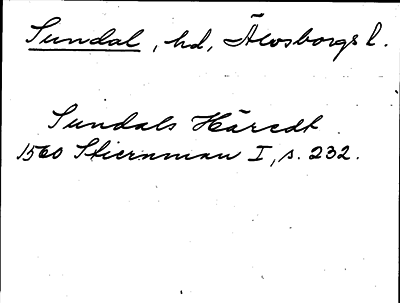 Sundal, hd, Älvsborgs l.
Sundals Häredt
1560 Stiernman I, s. 232.